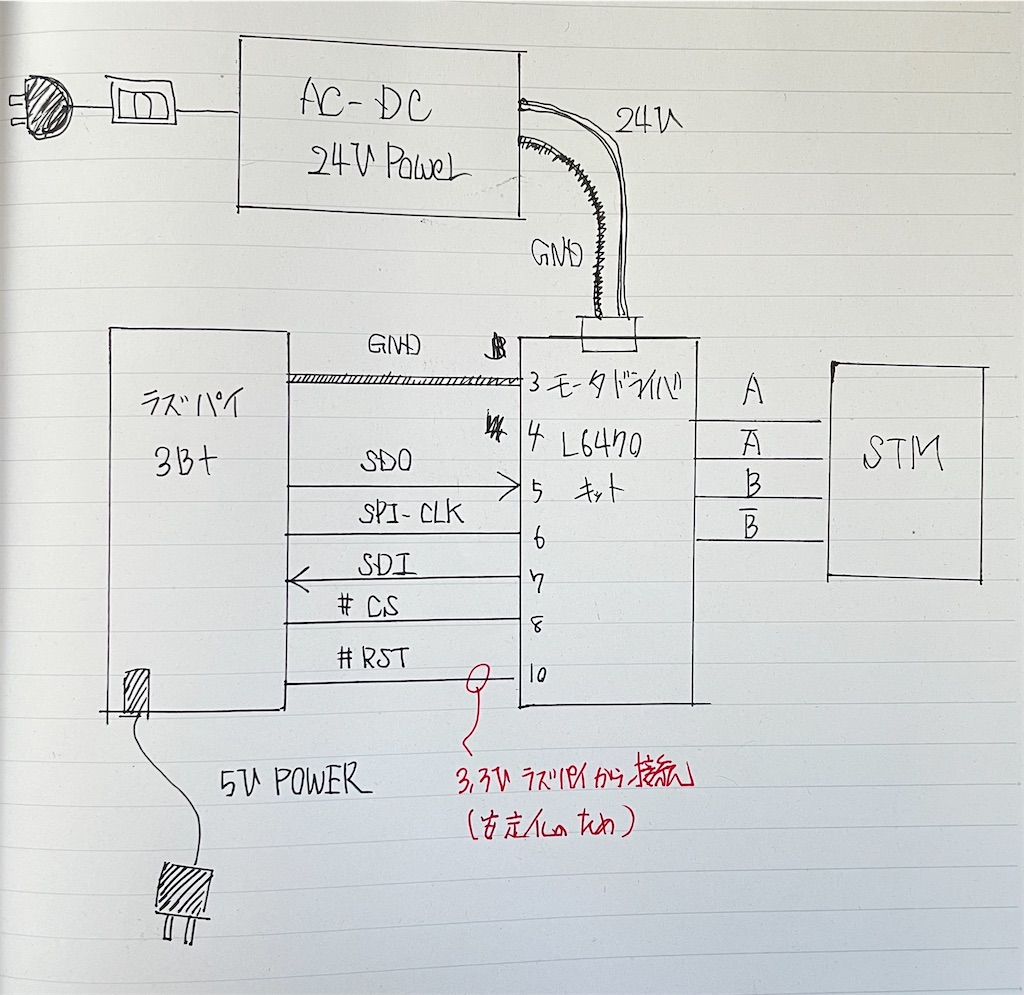 AC-DC
24V Power
24V
GND
GND
ラズパイ
3B+
3 モータドライバ
4 L6470
5 キット
6
7
8
10
SDO
SPI-CLK
SDI
# CS
# RST
A
A̅
B
B̅
STM
5V POWER
3.3V ラズパイから接続
(安定化のため)